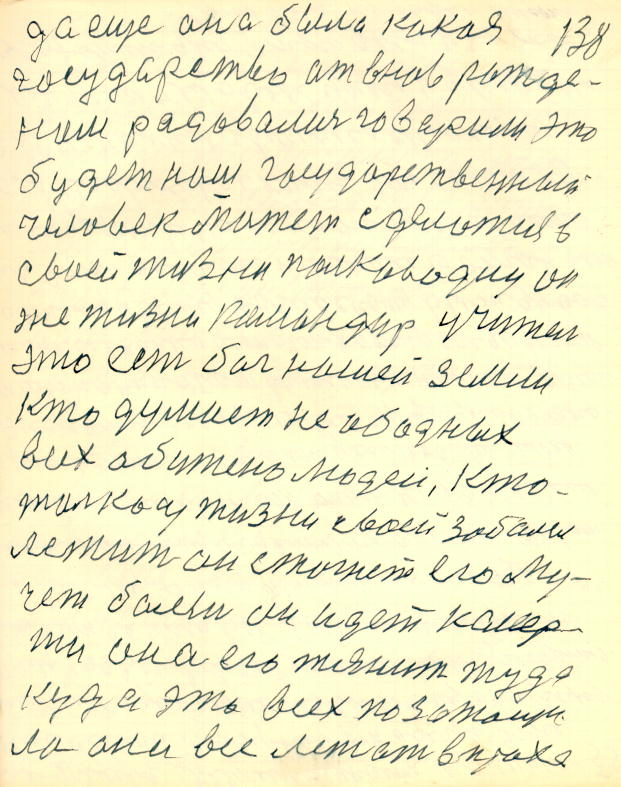 да еще она была какая 138
государство от внов рожде-
ном радовалис говорили это
будет наш государственный
человек Может сделотця в
своей жизни полководцу он
же жизни командир учител
это ест бог нашей земли
Кто думает не ободных
всех обижено людей, Кто-
жизни своей заболел
лежит он стогнет его му-
чет болеы он идет
она его тянит туда
куда это всех
ла они все лежат в прахе